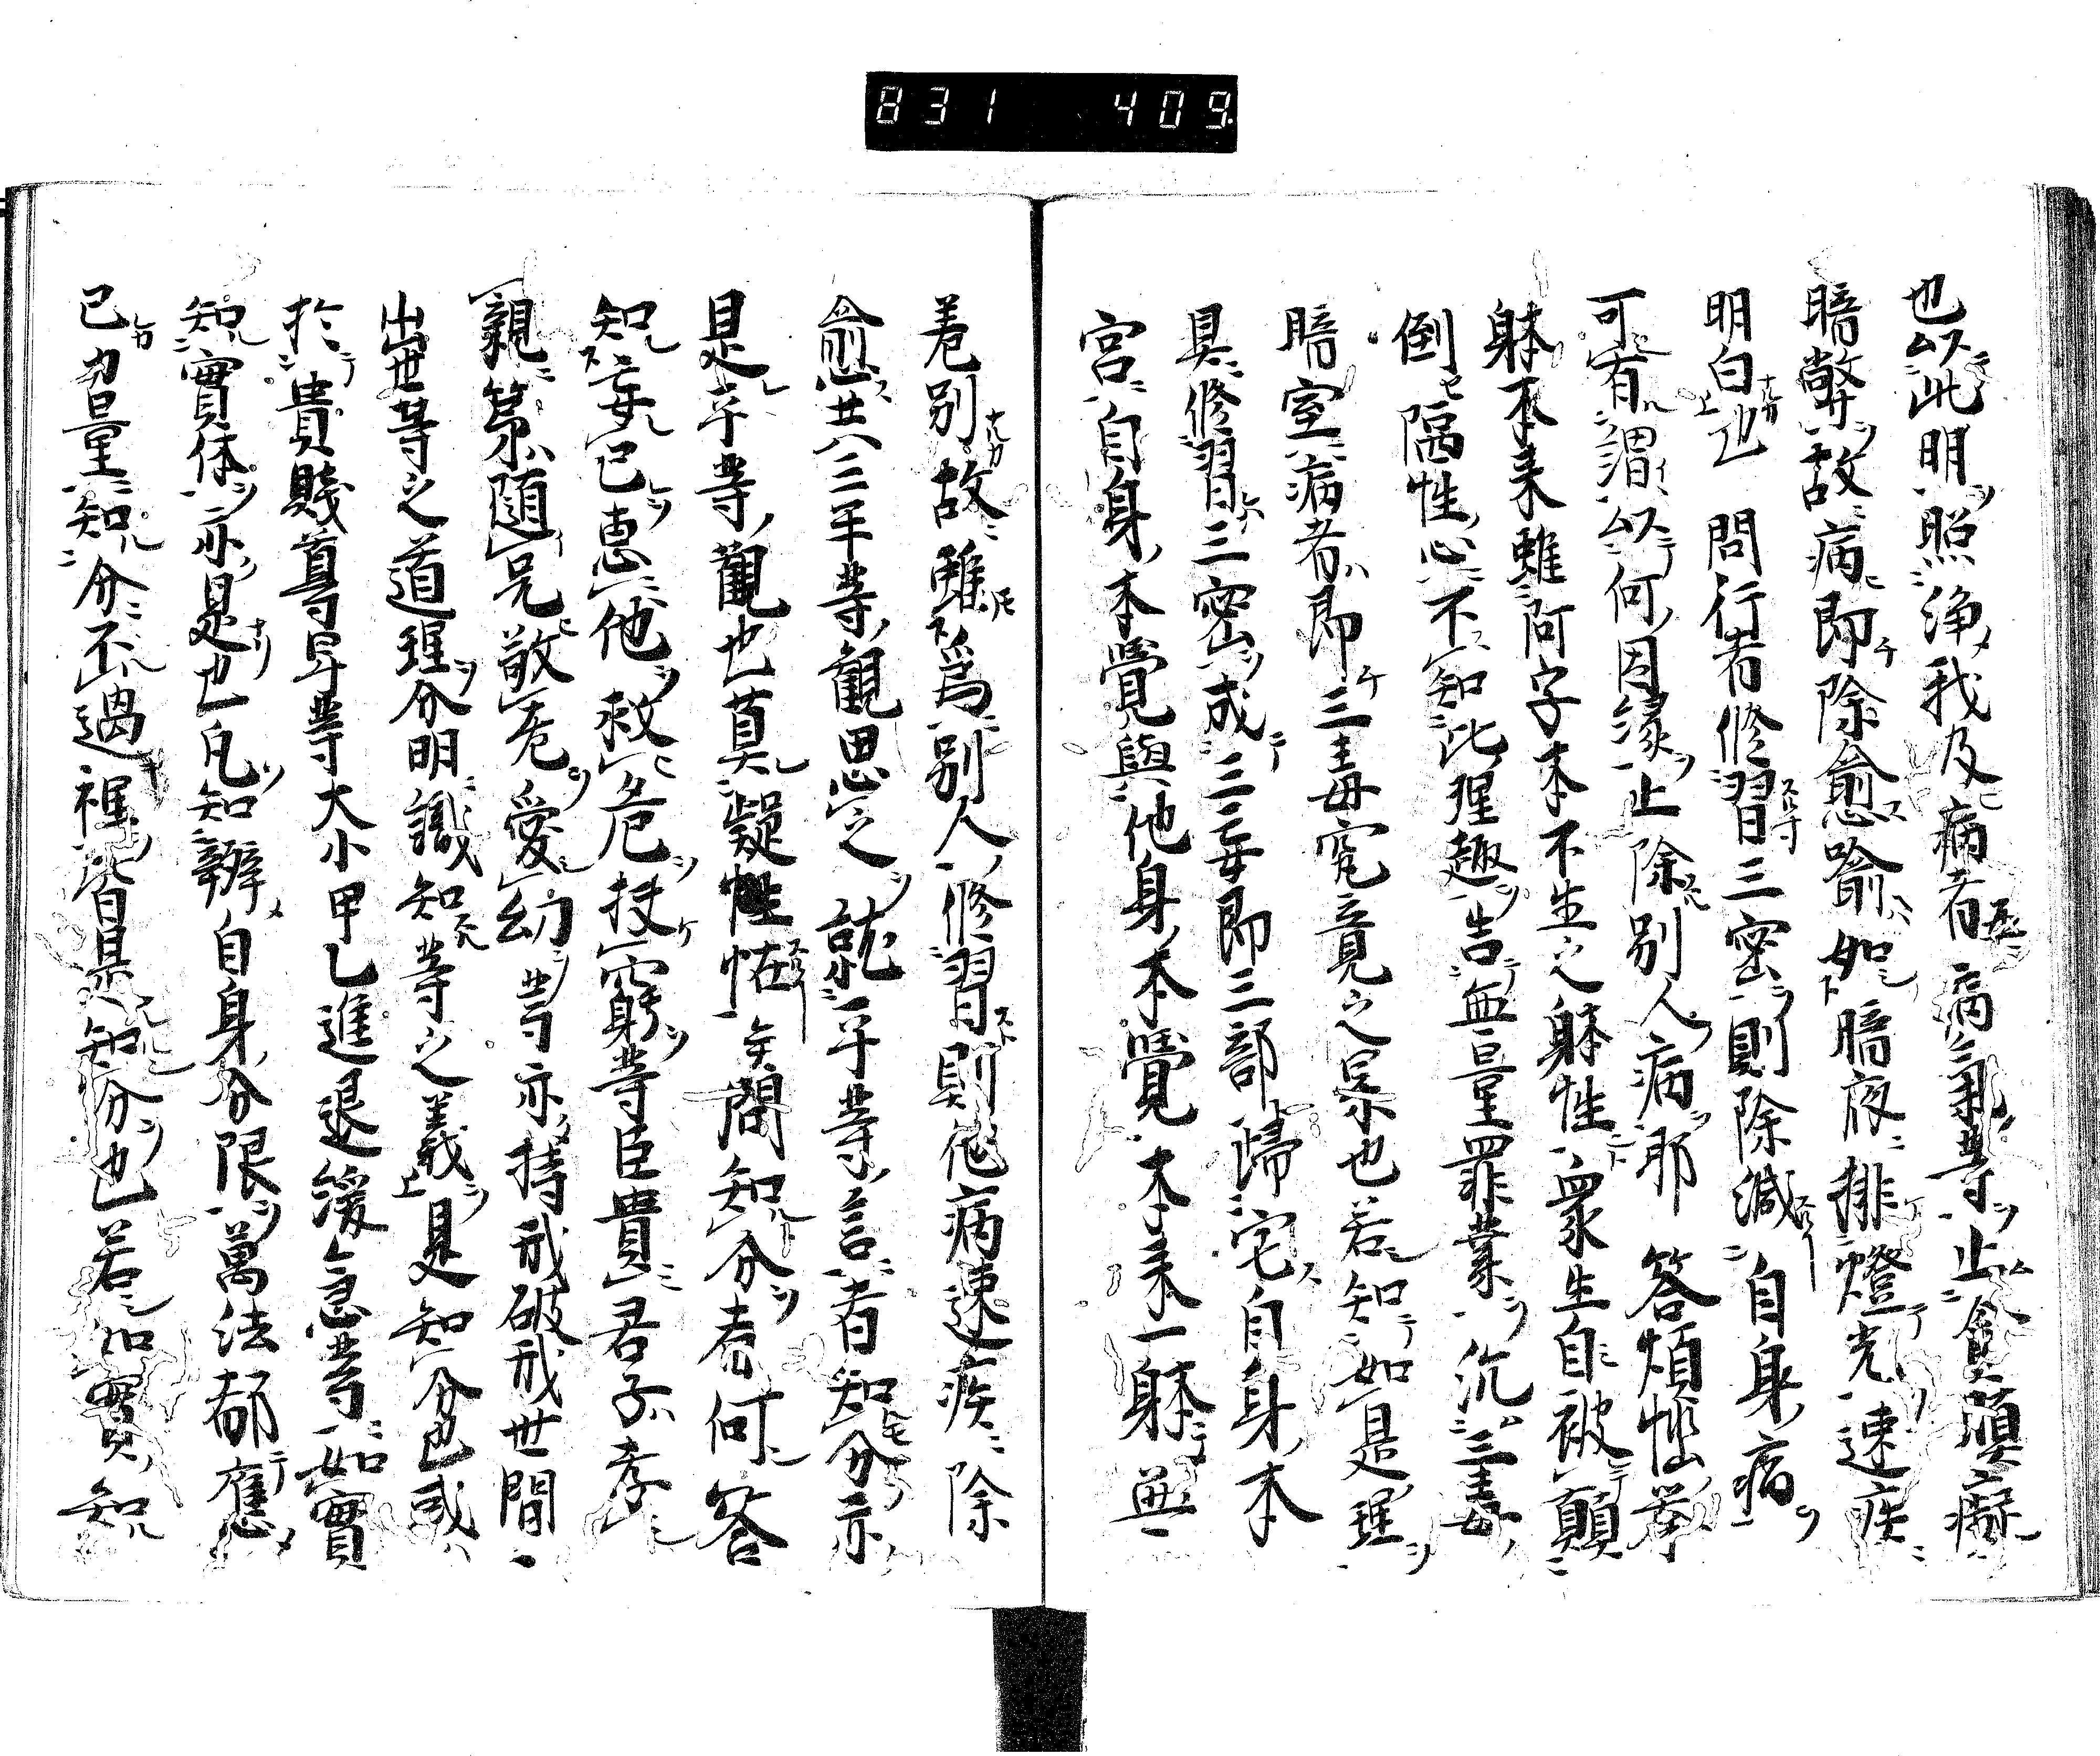 831 409
也以此明照浄我及病者病気等止貪瞋癡
暗弊故病即除愈喩如暗夜排燈光速疾
明白也 問行者修習三密則除滅自身病
可有謂以何因縁止除別人病耶 答煩悩挙
躰本来雖阿字本不生之躰性衆生自被顛
倒隔性心不知此理趣造無量罪業沉三毒
暗室病者即三毒究竟之果也若知如是理
具修習三密成三毒即三部帰宅自身本
宮自身本覚與他身本覚本来一躰無
差別故雖為別人修習則他病速疾除
愈共八三平等観思之就平等言者知分亦
是平等観也莫疑恠 矣問知分者何 答
知妄已恵他救危扶窮等臣貴君子孝
親弟随兄敬老愛幼等亦持戒破戒世間
出世等之道理分明識知等之義是知分也或
於貴賤尊卑等大小甲乙進退緩急等如實
知實体亦是也凡知辨自身分限萬法都應
已力量知分不過裡皆是知分也若如實知